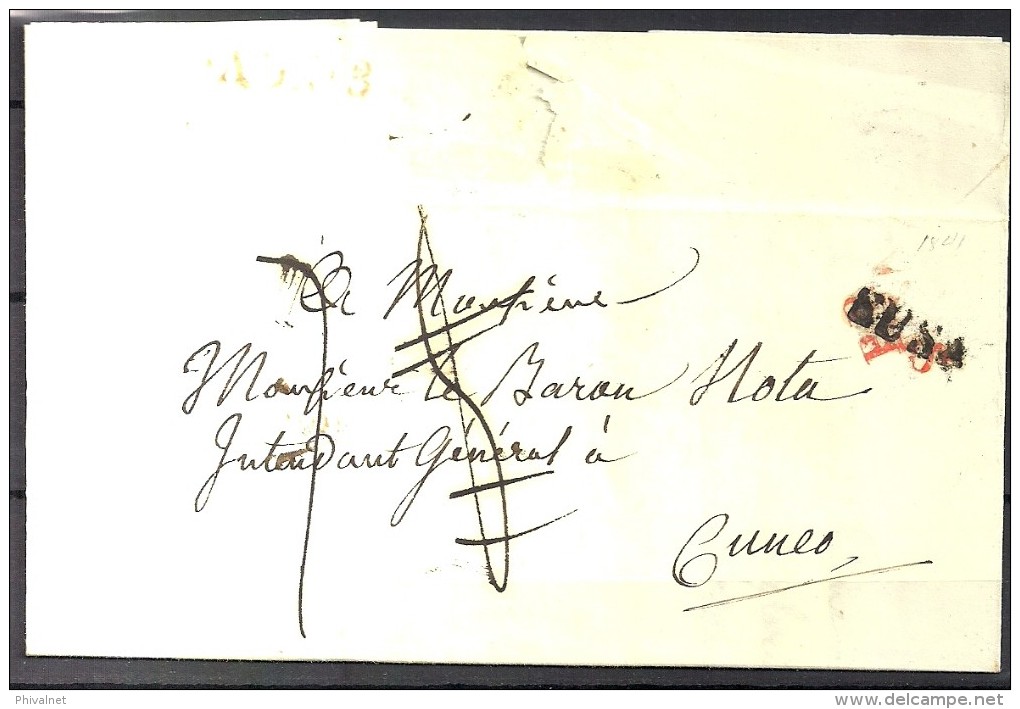 1841
À Monsieur
Monsieur le Baron Nota
Intendant Général à
Cuneo
Phivalnet
delcampe.net